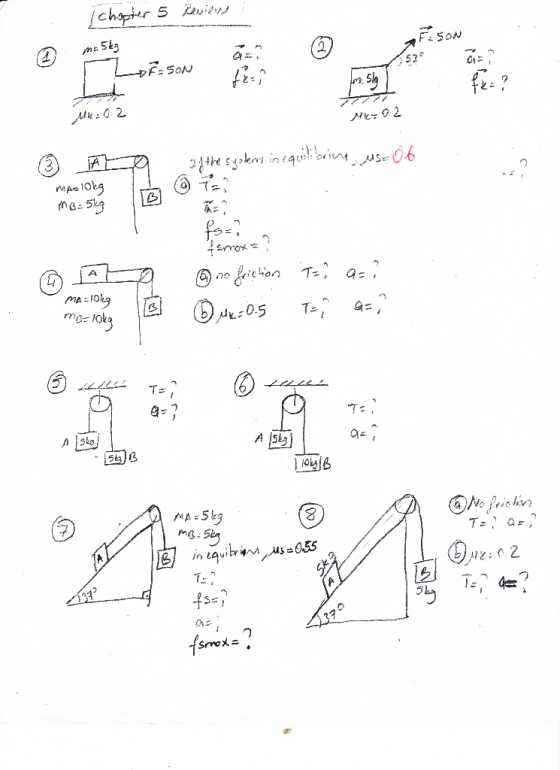 Chapter 5 Review
1
m=5kg
F=50N
μk=0.2
a=?
fk=?
2
F=50N
53°
m=5kg
μk=0.2
a=?
fk=?
3
A
B
mA=10kg
mB=5kg
If the system in equilibrium, μs=0.6
a
T=?
a=?
fs=?
fsmax=?
=?
4
A
B
mA=10kg
mB=10kg
a no friction T=? a=?
b μk=0.5 T=? a=?
5
A 5kg
5kg B
T=?
a=?
6
A 5kg
10kg B
T=?
a=?
7
A
B
37°
mA=5kg
mB=5kg
in equilibrium, μs=0.55
T=?
fs=?
a=?
fsmax=?
8
5kg
A
B
5kg
37°
a No friction
T=? a=?
b μk=0.2
T=? a=?